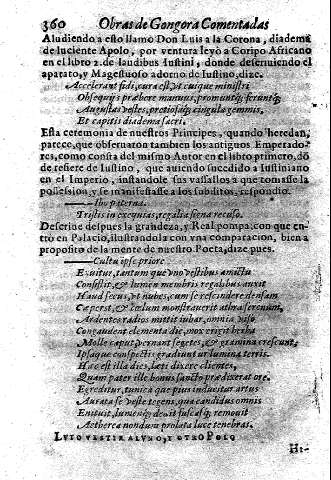 360 Obras de Gongora Comentadas
Aludiendo a esto llamó Don Luis a la Corona, diadema
de luciente Apolo, por ventura leyò a Coripo Africano
en el libro 2. de laudibus Iustini, donde descriuiendo el
aparato, y Magestuoso adorno de Iustino, dize.
Accelerant fidi, cura est, vt cuique ministri
Obsequijs præbere manus, promuntq; feruntq;
Augustas vestes, pretiosisq; cingula gemmis,
Et capitis diadema sacri.
Esta ceremonia de nuestros Principes, quando heredan,
parece, que obseruaron tambien los antiguos Emperado-
res, como consta del mismo Autor en el libro primero, dõ
de refiere de Iustino, que auiendo sucedido a Iustiniano
en el Imperio, instandole sus vassallos, a que tomasse la
possession, y se manifestasse a los subditos, respondio.
paterna.
Tristis in exequias, regalia signa recuso.
Descriue despues la grandeza, y Real pompa, con que en-
trò en Palacio, ilustrandola con vna comparacion, bien a
proposito de la mente de nuestro Poeta, dize pues.
Cultu ipse priore
Exuitur, tantum que vno vestibus amictu
Constitit, & lumen membris regalibus auxit
Haud secus, vt nubes, cum se rescindere densam
Cæperit, & cœlum monstrauerit æthra serenum,
Ardentes radios mittit iubar, omnia
Congaudent elementa die, mox erigit herba
Molle caput, vernant segetes, & gramina crescunt,
Ipsaque conspectis gradiunt ur lumina terris.
Hæc est illa dies, læti dixere clientes,
Quam pater ille bonus sancto prædixerat ore.
Egreditur, tunica que pius induitur artus
Aurata se veste tegens, qua candidus omnis
Enituit, lumenq; dedit fuscasq; remouit
Aethereæ nondum prolata luce tenebras.
LVTO VESTIR AL VNO, Y OTRO POLO
Hi-